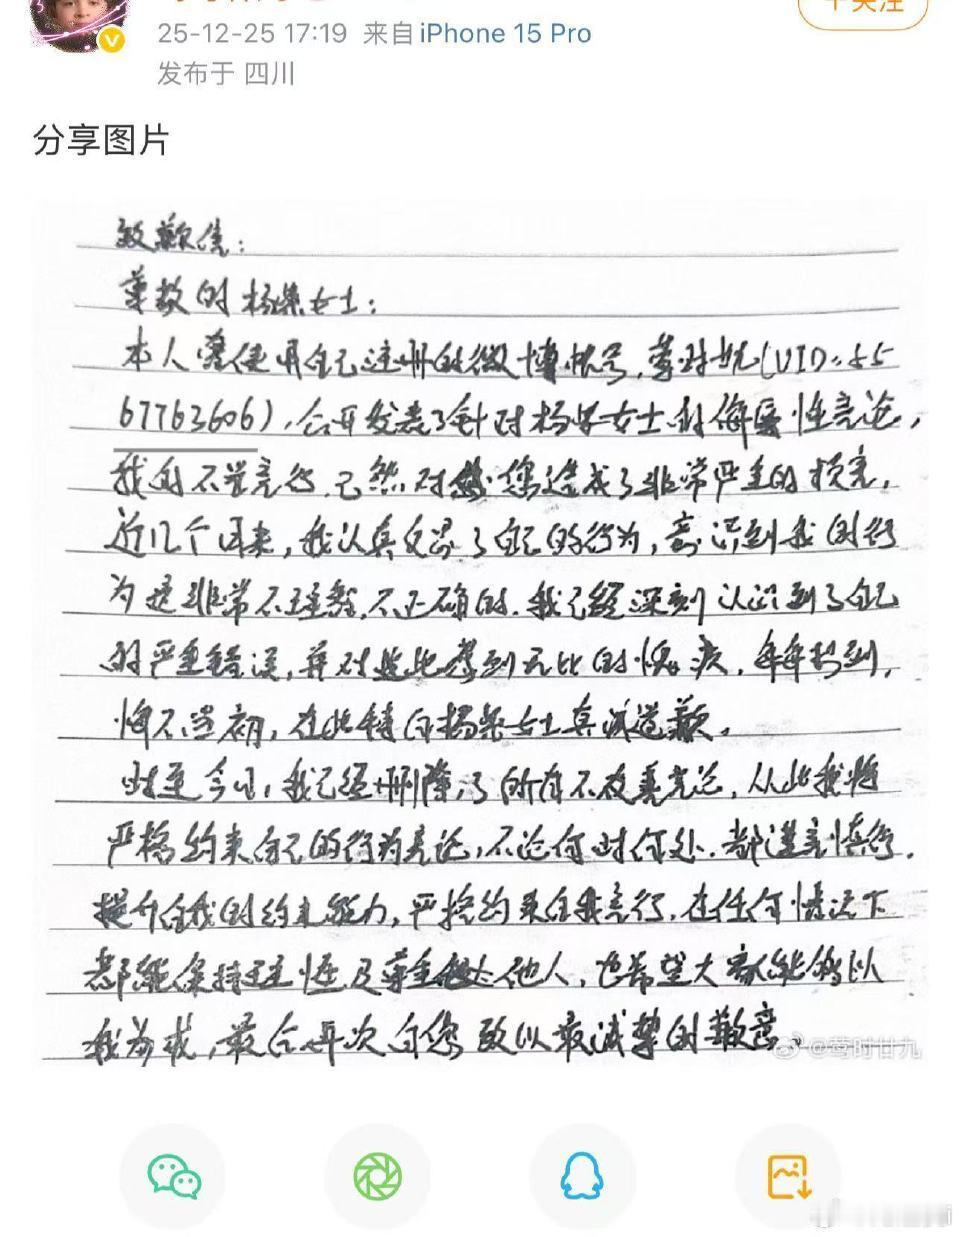 25-12-25 17:19 来自 iPhone 15 Pro
发布于 四川
分享图片
致歉信：
尊敬的杨紫女士：
本人曾使用自己注册的微博帐号，莺时廿九（UID：55
67763606），公开发表了针对杨紫女士的侮辱性言论，
我的不当言行，已然对您造成了非常严重的损害，
近几个月来，我认真反思了自己的行为，意识到我的行
为是非常不理智，不正确的，我已经深刻认识到了自己
的严重错误，并对此感到无比的愧疚，每每想到，
悔不当初，在此特向杨紫女士真诚道歉。
时至今日，我已经删除了所有不友善言论，从此我将
严格约束自己的行为言论，不论何时何处，都谨言慎行，
提升自我的约束能力，严格约束自我言行，在任何情况下
都能保持理性及尊重他人，也希望大家能够以
我为戒，最后再次向您致以最诚挚的歉意。
@莺时廿九